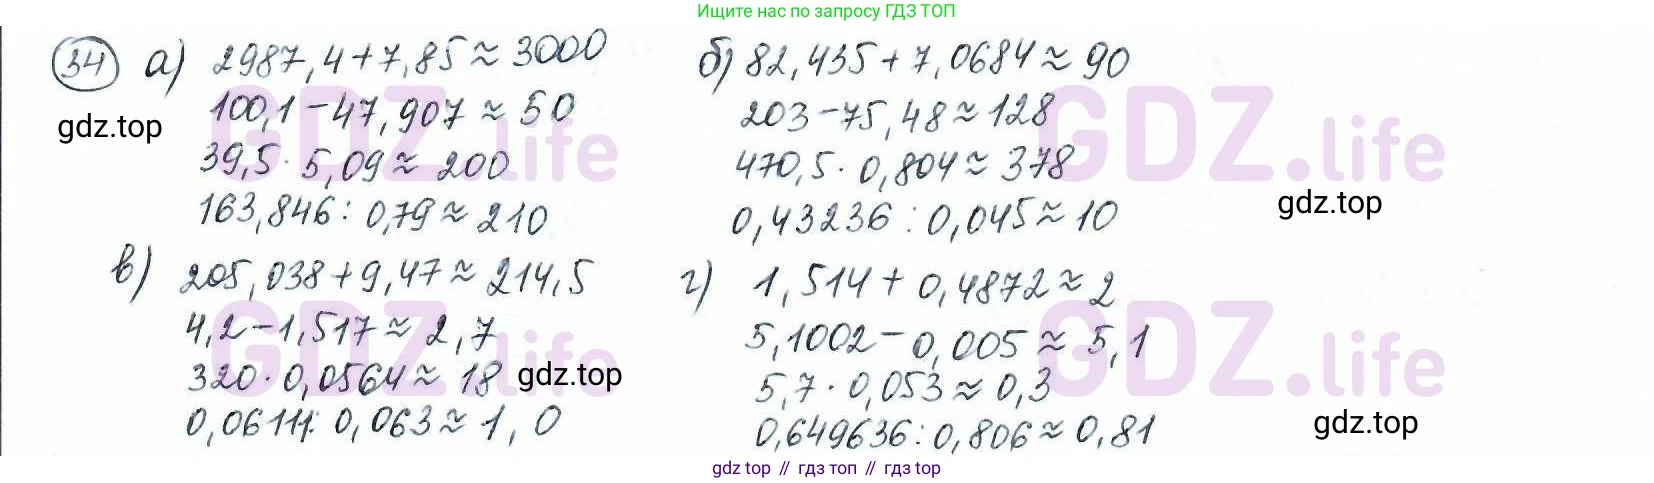 Ищите нас по запросу ГДЗ ТОП
34 а) 2987,4+7,85≈3000
100,1-47,907≈50
39,5·5,09≈200
163,846:0,79≈210
б) 82,435+7,0684≈90
203-75,48≈128
470,5·0,804≈378
0,43236:0,045≈10
в) 205,038+9,47≈214,5
4,2-1,517≈2,7
320·0,0564≈18
0,06111:0,063≈1,0
г) 1,514+0,4872≈2
5,1002-0,005≈5,1
5,7·0,053≈0,3
0,649636:0,806≈0,81
gdz.top
gdz.top
gdz.top
gdz.top
GDZ.life
GDZ.life
GDZ.life
GDZ.life
gdz top // гдз топ // gdz top